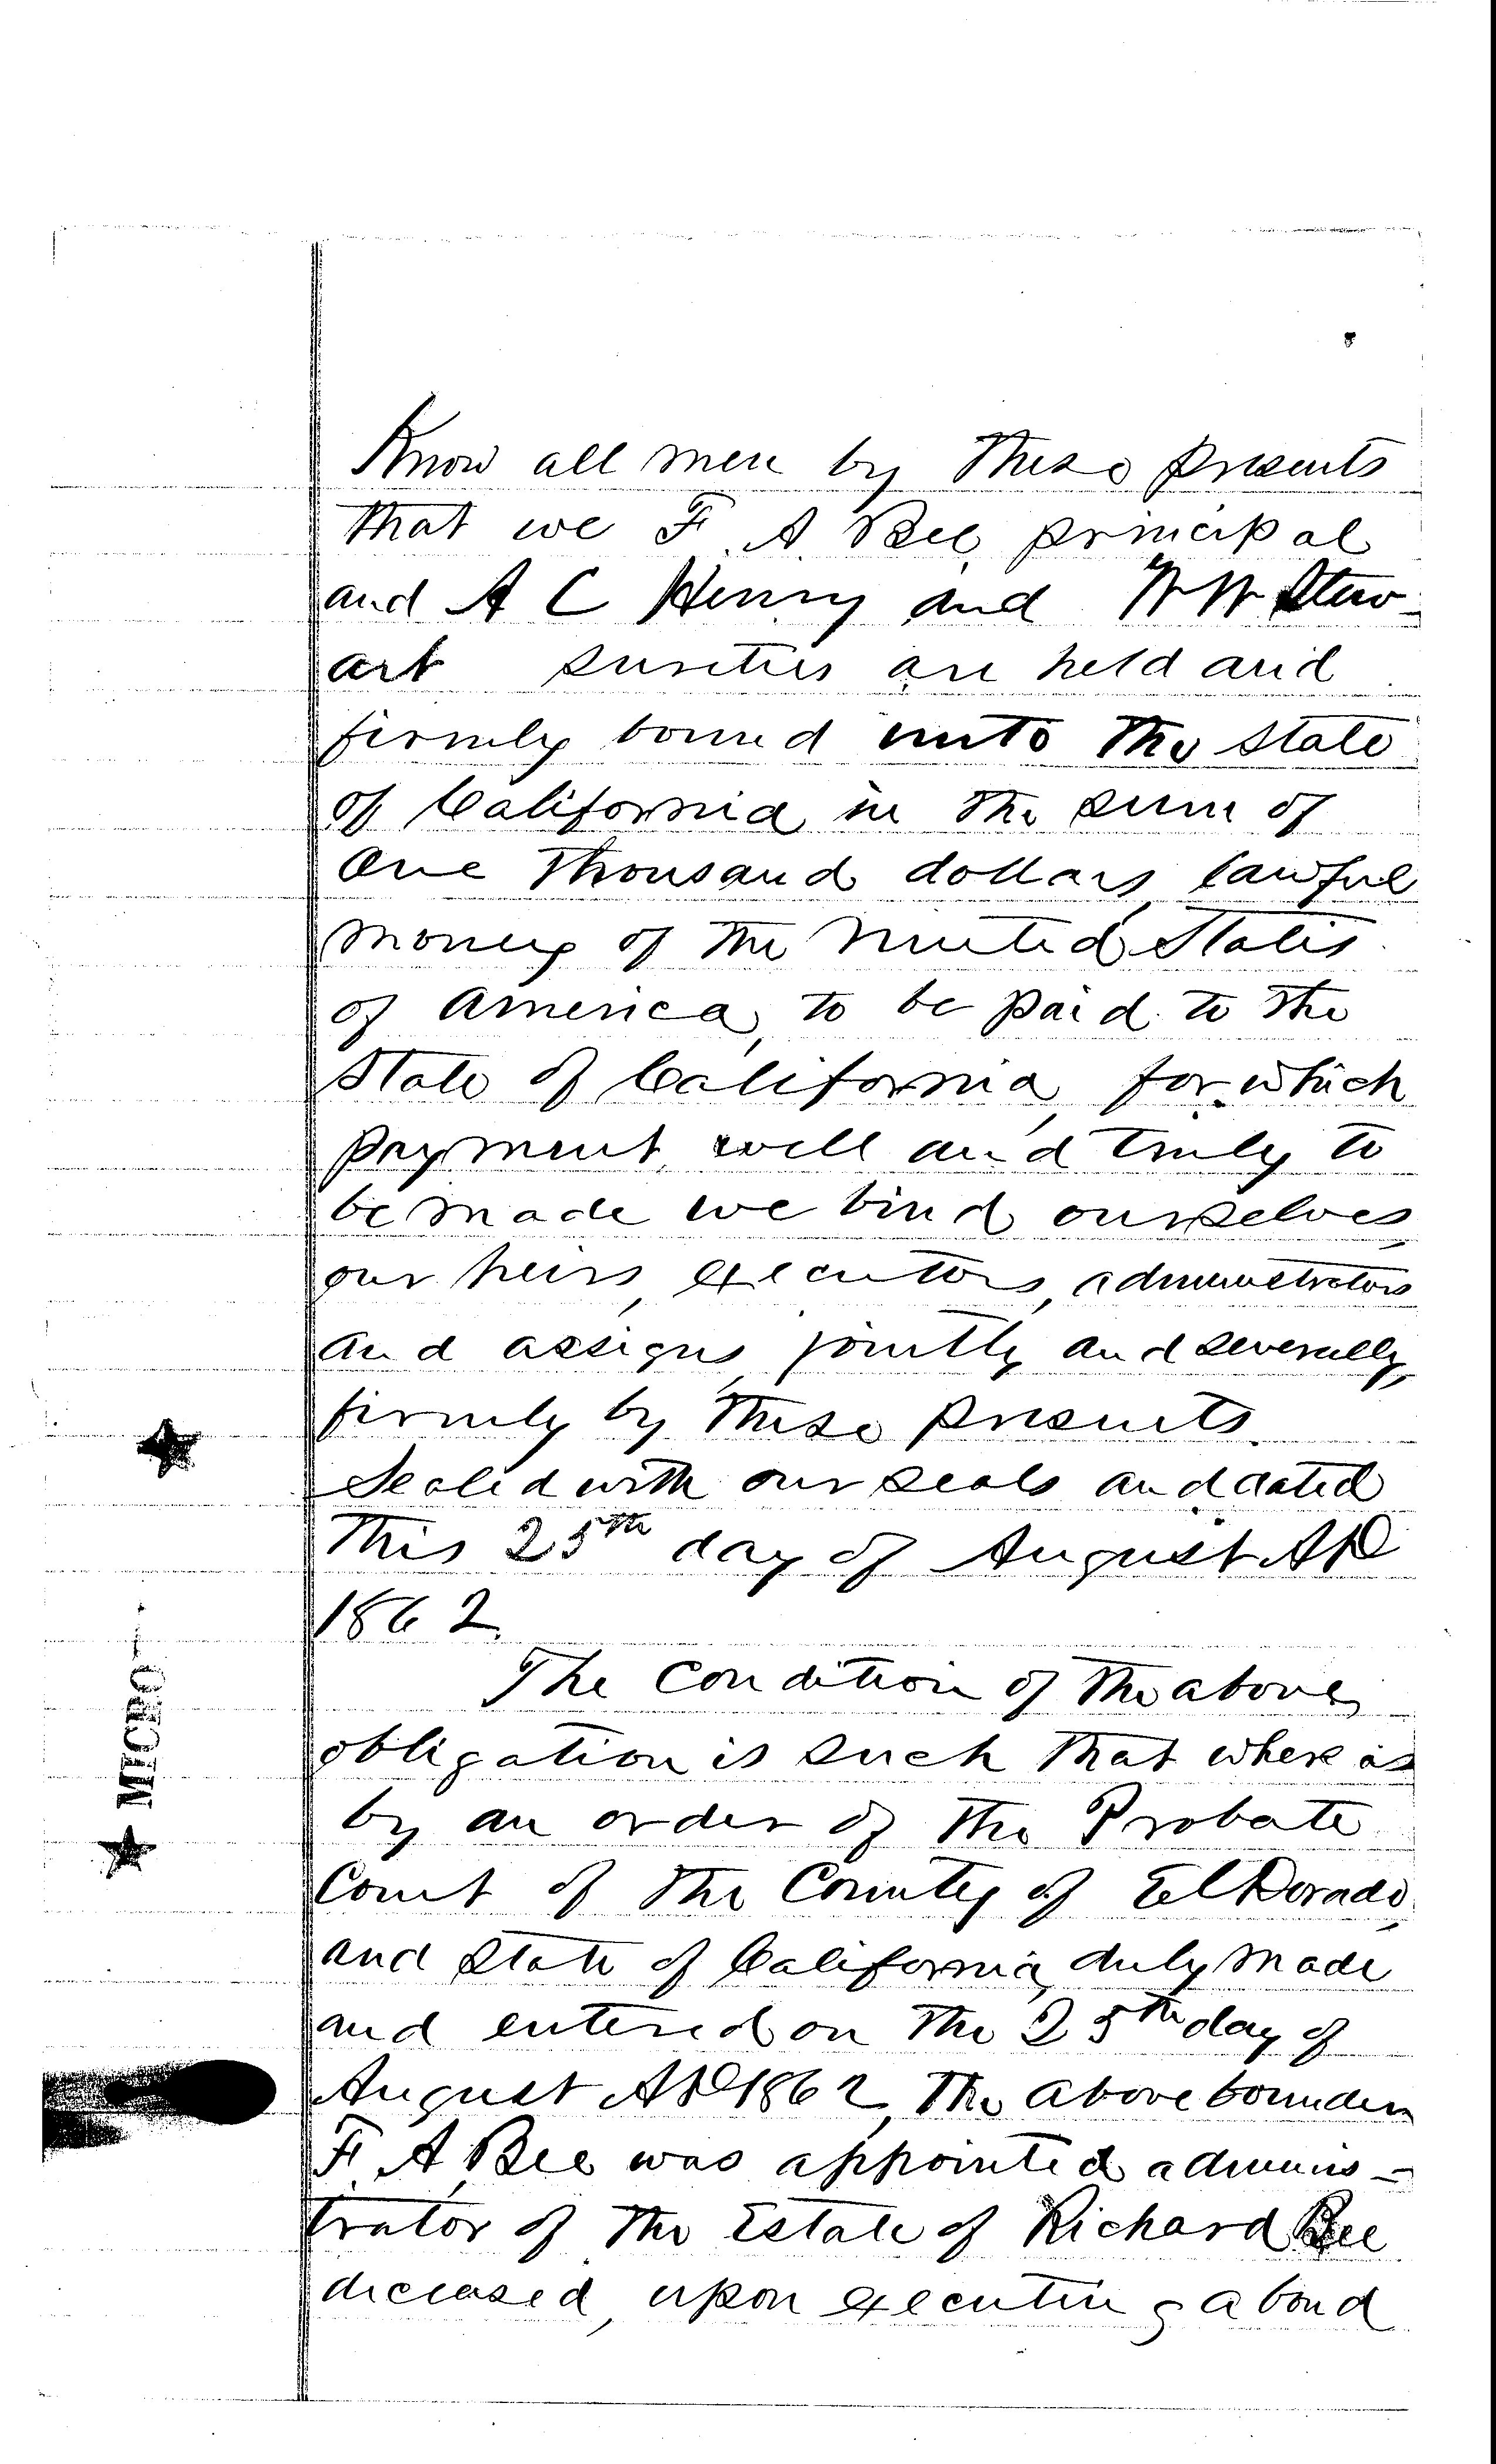 Know all men by these presents
that we F. A. Bee, principal
and A C Henry and W W Stew-
art sureties are held and
firmly bound unto the State
of California in the sum of
One thousand dollars, lawful
money of the United States
of America, to be paid to the
State of California, for which
payment, well and truly to
be made we bind ourselves,
our heirs, executors, administrators
and assigns, jointly and severally,
firmly by these presents.
Sealed with our seals and dated
this 25th day of August AD
1862.
The condition of the above
obligation is such that whereas
by an order of the Probate
Court of the County of El Dorado,
and State of California, duly made
and entered on the 25th day of
August AD 1862, the above bounden
F. A. Bee was appointed adminis-
trator of the Estate of Richard Bee
deceased, upon executing a bond
★ MICRO ★